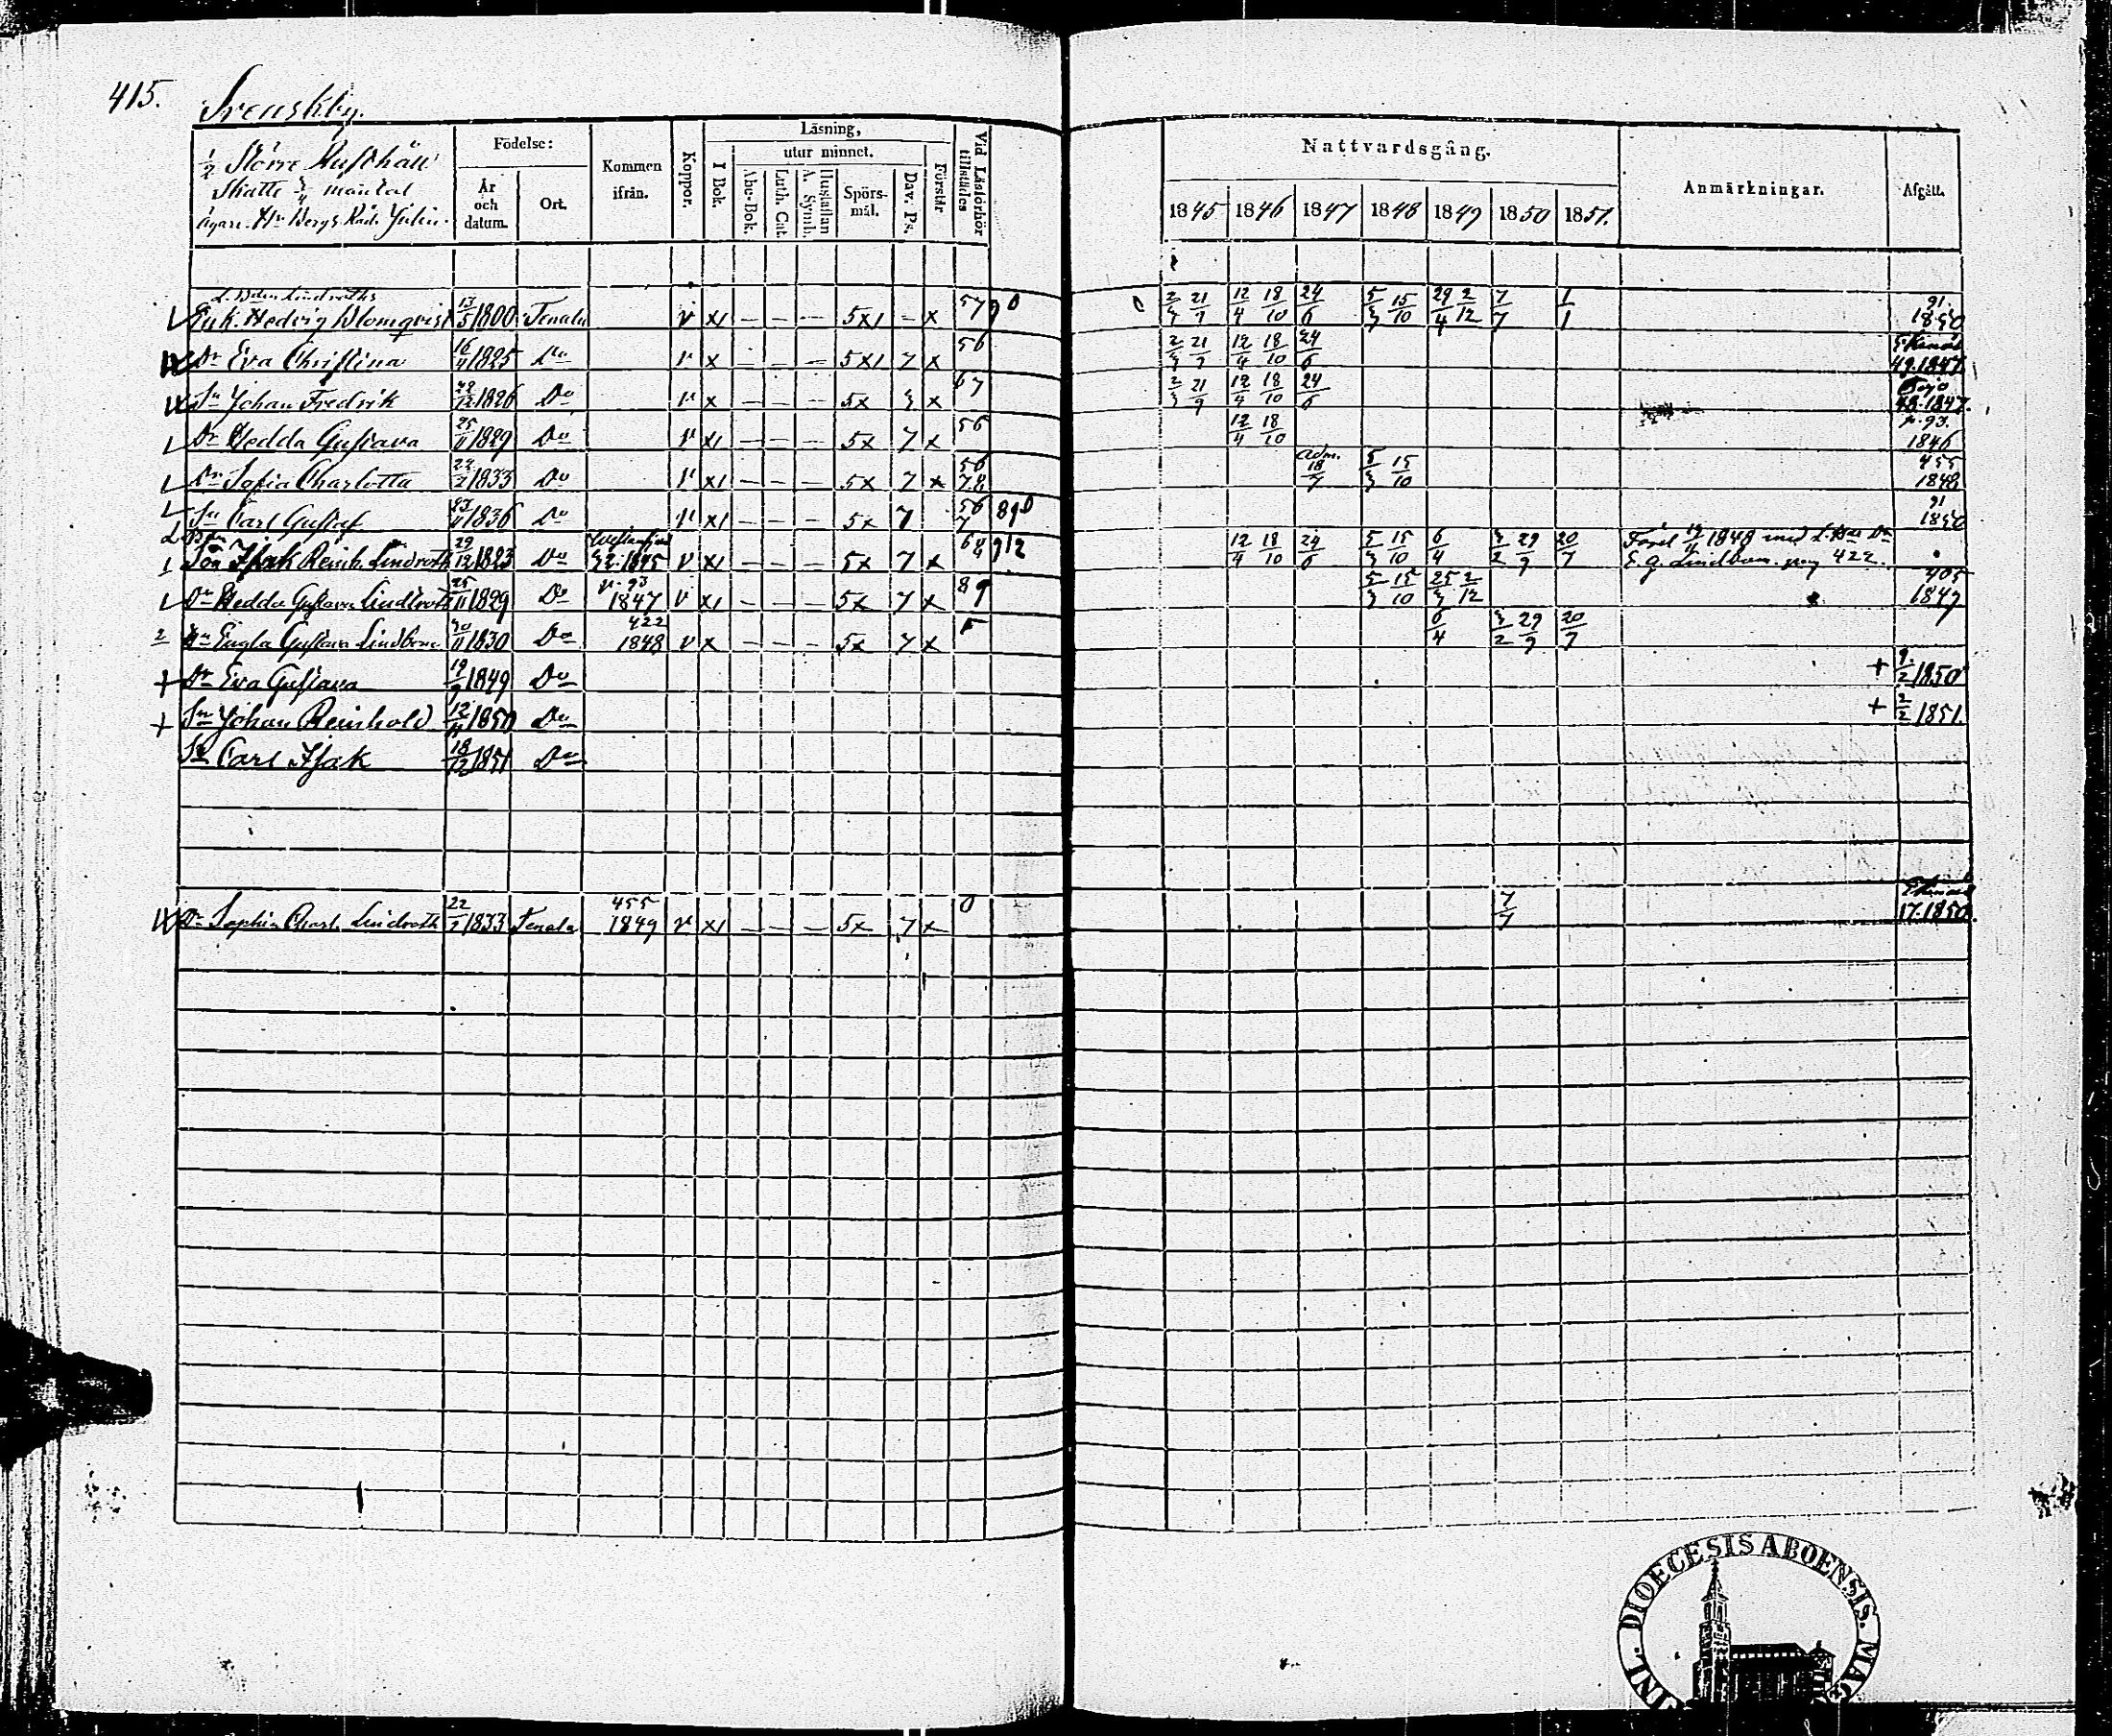 415.
Svenskby.
1/2 Större Rusthåll
Skatte 3/4 mantal
ägare Hr Bergs Råd. Julin.
Födelse:
År och datum.
Ort.
Kommen ifrån.
Koppor.
Läsning,
I Bok.
utur minnet.
Abc-Bok.
Luth. Cat.
Hustaflan A. Symb.
Spörsmål.
Dav. Ps.
Förstår
Vid Läsförhör tillstädes
Nattvardsgång.
1845 1846 1847 1848 1849 1850 1851.
Anmärkningar.
Afgått.
Lindroths
Enk. Hedvig Blomqvist 13/5 1800 Tenala v x1 — — — 5x1 — x 57 90 21/9 12/4 18/10 24/6 5/3 15/10 29/4 2/12 7/7 1/1 91. 1850
Dr Eva Christina 16/4 1825 Do v x — — — 5x1 7 x 56 21/9 12/4 18/10 24/6 49.1847.
Sn Johan Fredrik 1826 Do v x 5x 3 x 67 2/3 21/9 12/4 18/10 24/6 Bojo 48.1847.
Dr Hedda Gustava 25/11 1829 Do v x1 — — — 5x 7 x 56 12/4 18/10 p. 93. 1846
Dr Sofia Charlotta 22/7 1833 Do v x1 — — — 5x 7 x 56 78 adm. 18/7 5/3 15/10 455 1848
Sn Carl Gustaf 1836 Do v x1 — — — 5x 7 56 7 890 91 1850
Son Isak Reinh. Lindroth 29/12 1823 Do 32.1845 v x1 — — — 5x 7 x 912 12/4 18/10 24/6 5/3 15/10 6/4 3/2 29/9 20/7 1848 med
E. G. Lindbom. pag 422.
Dr Hedda Gustava Lindroth 25/11 1829 Do p. 93 1847 v x1 — — — 5x 7 x 89 5/3 15/10 25/3 2/12 405 1849
2 Engla Gustava Lindbom 30/11 1830 Do 422 1848 v x — — — 5x 7 x 6/4 3/2 29/9 20/7
+ Dr Eva Gustava 1849 Do + 9/2 1850
+ Sn Johan Reinhold 12/11 1850 Do + 2/2 1851.
Sn Carl Isak 18/12 1851 Do
Dr Sophia Charl. Lindroth 22/7 1833 Tenala 455 1849 v x1 — — — 5x 7 x 0 7/7 17.1850.
DIOECESIS ABOENSIS.